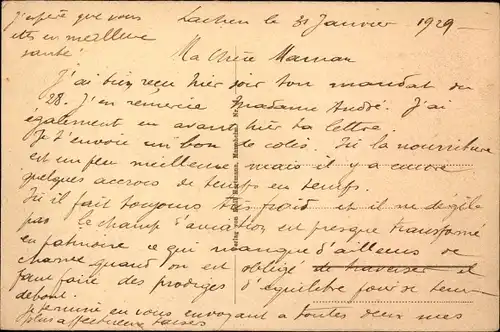 J'espère que vous
êtes en meilleure
santé!
Lachen le 31 Janvier 1929
Ma Chère Maman
J'ai bien reçu hier soir ton mandat du
28. J'en remercie Madame André. J'ai
également eu avant hier ta lettre.
Je t'envoie un bon de colis. Ici la nourriture
est un peu meilleure mais il y a encore
quelques accrocs de temps en temps.
Ici il fait toujours très froid et il ne dégèle
pas le champ d'aviation est presque transformé
en patinoire ce qui manque d'ailleurs de
charme quand on est obligé de traverser il
faut faire des prodiges d'équilibre pour se tenir
debout.
Je termine en vous envoyant à toutes deux mes
plus affectueux baisers
Verlag von Hartmann, Mannheim